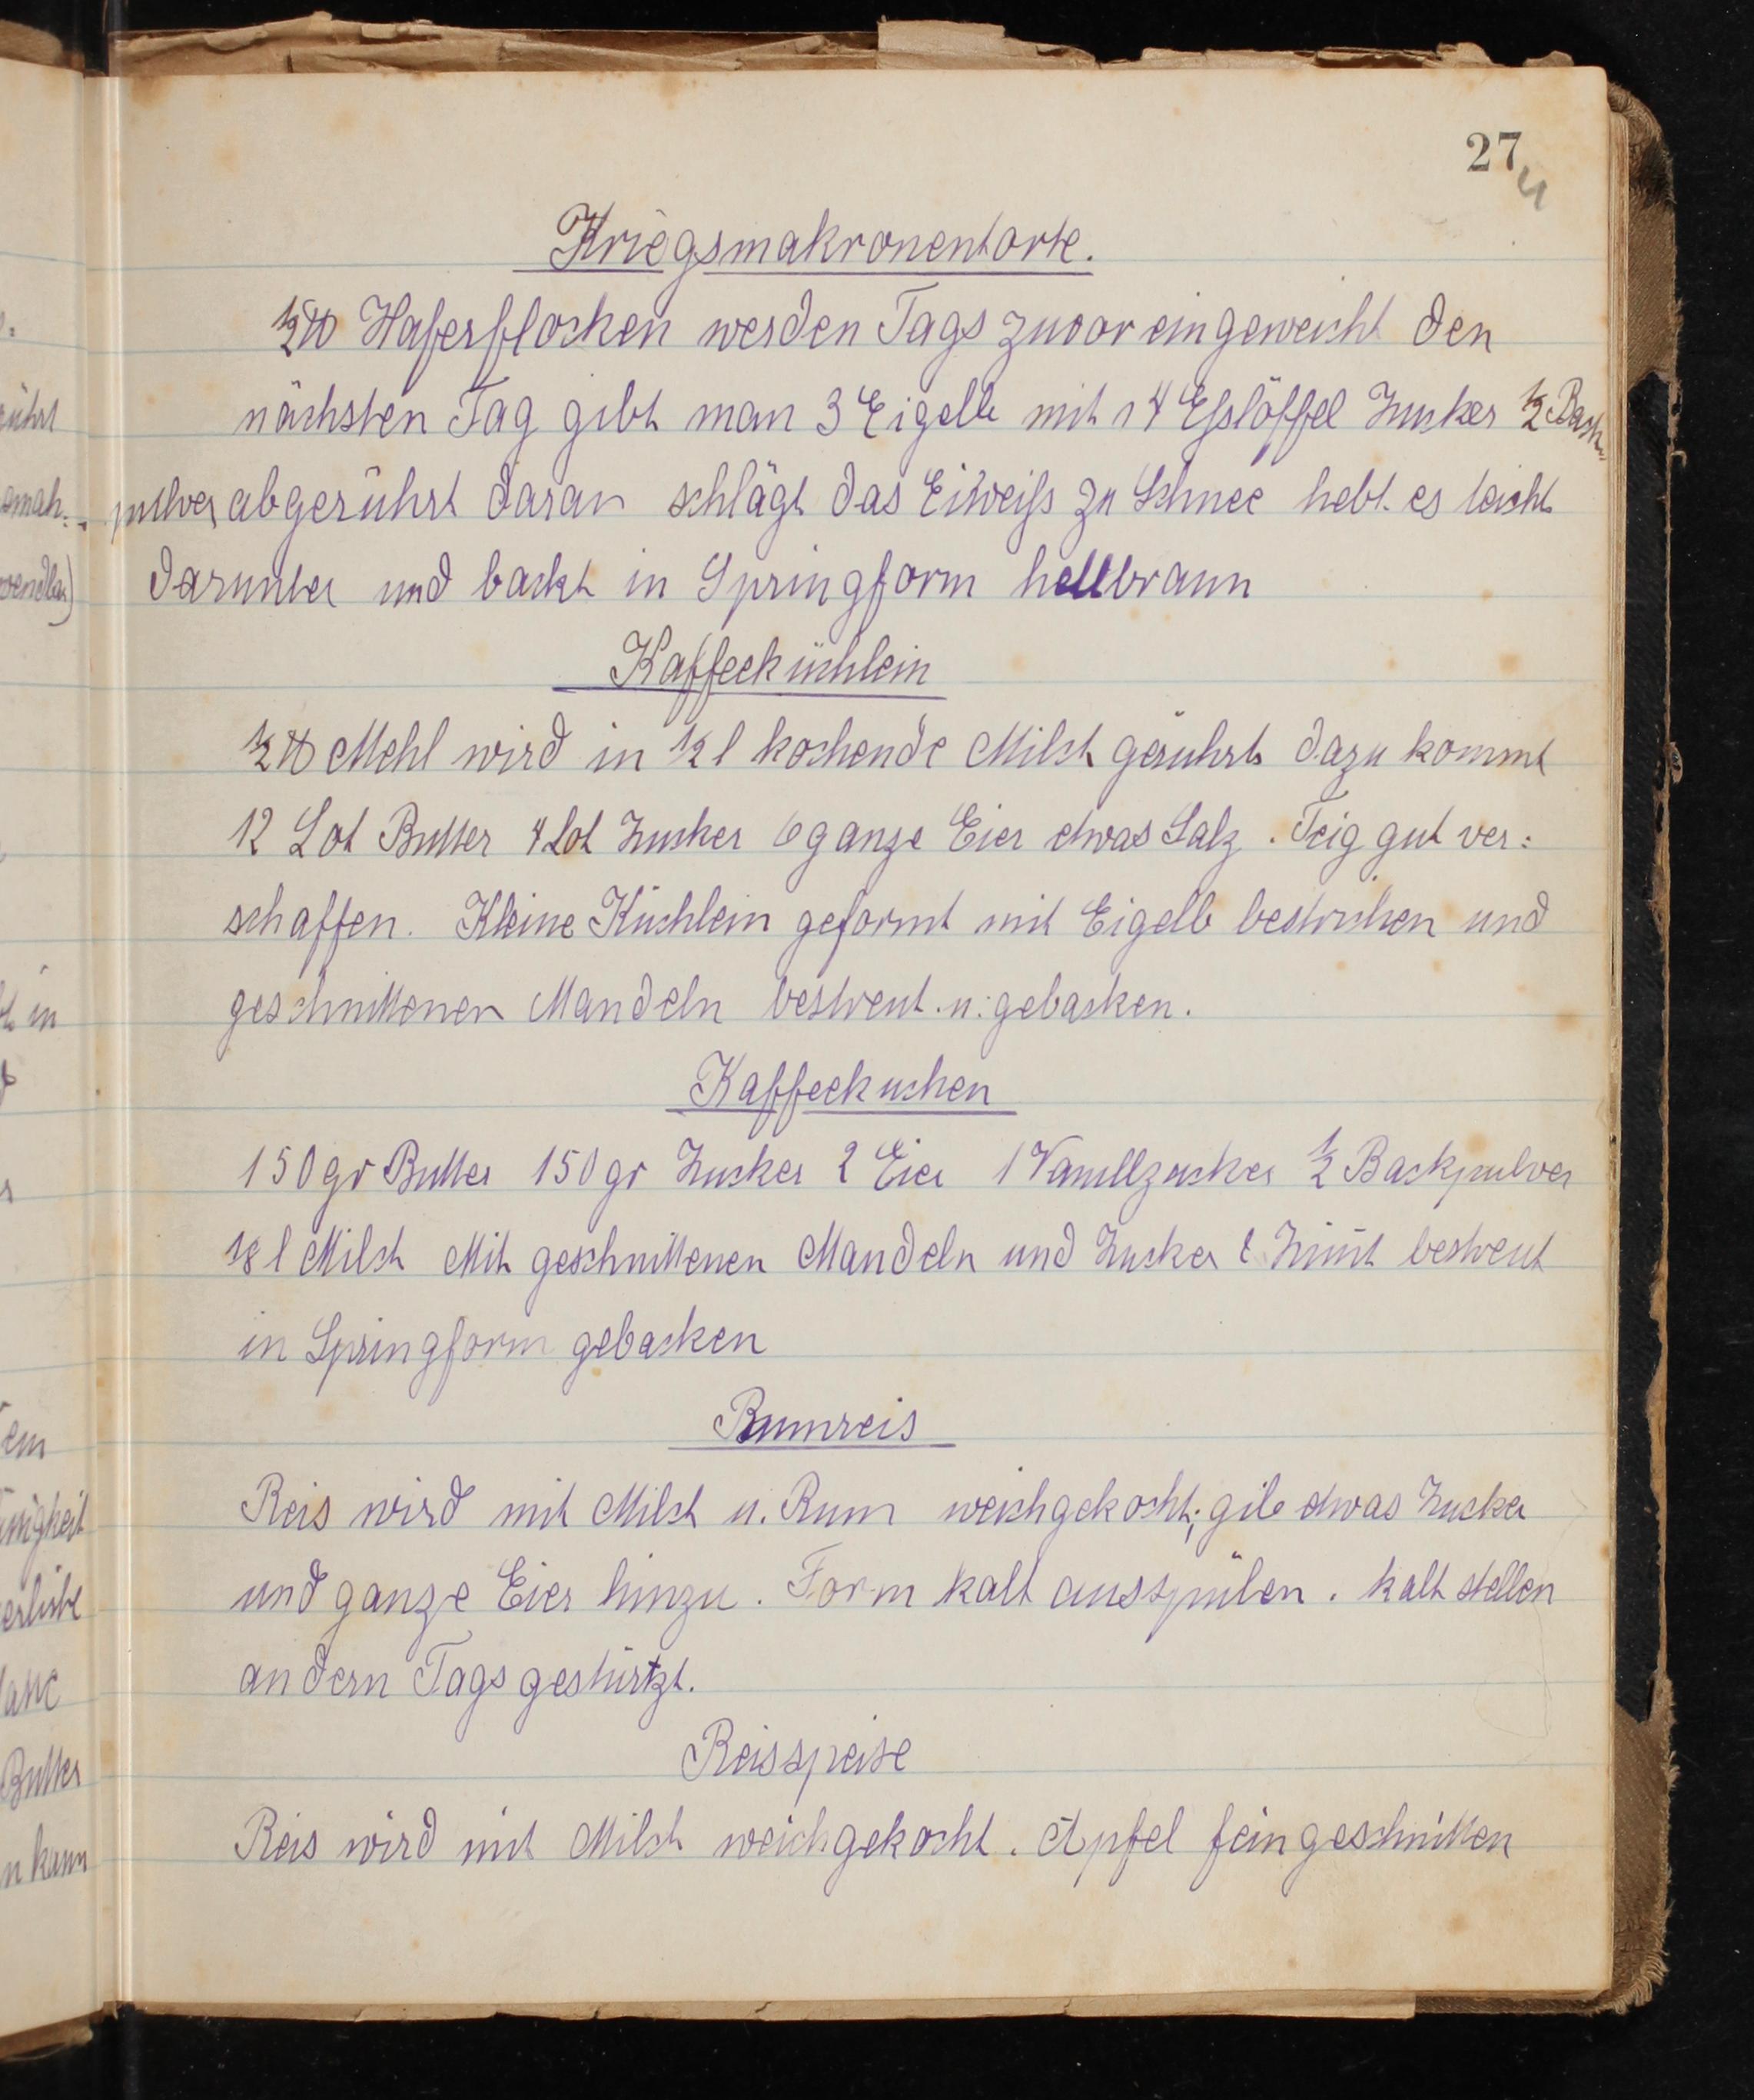 27
4
Kriegsmakronentorte.
½ ℔ Haferflocken werden Tags zuvor eingeweicht den
nächsten Tag gibt man 3 Eigelb mit 4 Eßlöffel Zucker ½ Back-
pulver abgerührt daran schlägt das Eiweiß zu Schnee hebt es leicht
darunter und backt in Springform hellbraun
Kaffeeküchlein
½ ℔ Mehl wird in ½ l kochende Milch gerührt dazu kommt
12 Lot Butter 4 Lot Zucker 6 ganze Eier etwas Salz. Teig gut ver:
schaffen. Kleine Küchlein geformt mit Eigelb bestrichen und
geschnittenen Mandeln bestreut u: gebacken.
Kaffeekuchen
150 gr Butter 150 gr Zucker 2 Eier 1 Vanillzucker ½ Backpulver
⅛ l Milch Mit geschnittenen Mandeln und Zucker & Zimt bestreut
in Springform gebacken
Rumreis
Reis wird mit Milch u. Rum weichgekocht; gib etwas Zucker
und ganze Eier hinzu. Form kalt ausspülen. kalt stellen
andern Tags gestürtzt.
Reisspeise
Reis wird mit Milch weichgekocht. Äpfel fein geschnitten